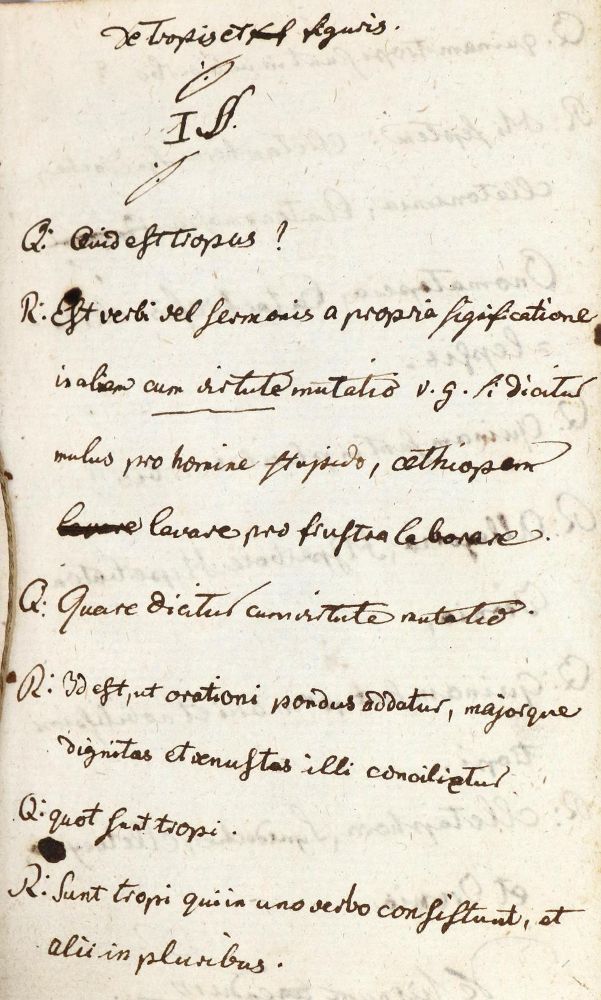 de tropis et figuris.
I §.
Q: Quid est tropus?
R: Est verbi vel sermonis a propria significatione
in aliam cum virtute mutatio v. g. si dicitur
mulus pro homine stupido, æthiopem
lavare pro frustra laborare.
Q: Quare dicitur cum virtute mutatio.
R: Id est, ut orationi pondus addatur, majorque
dignitas et venustas illi concilietur
Q: quot sunt tropi.
R: Sunt tropi qui in uno verbo consistunt, et
alii in pluribus.